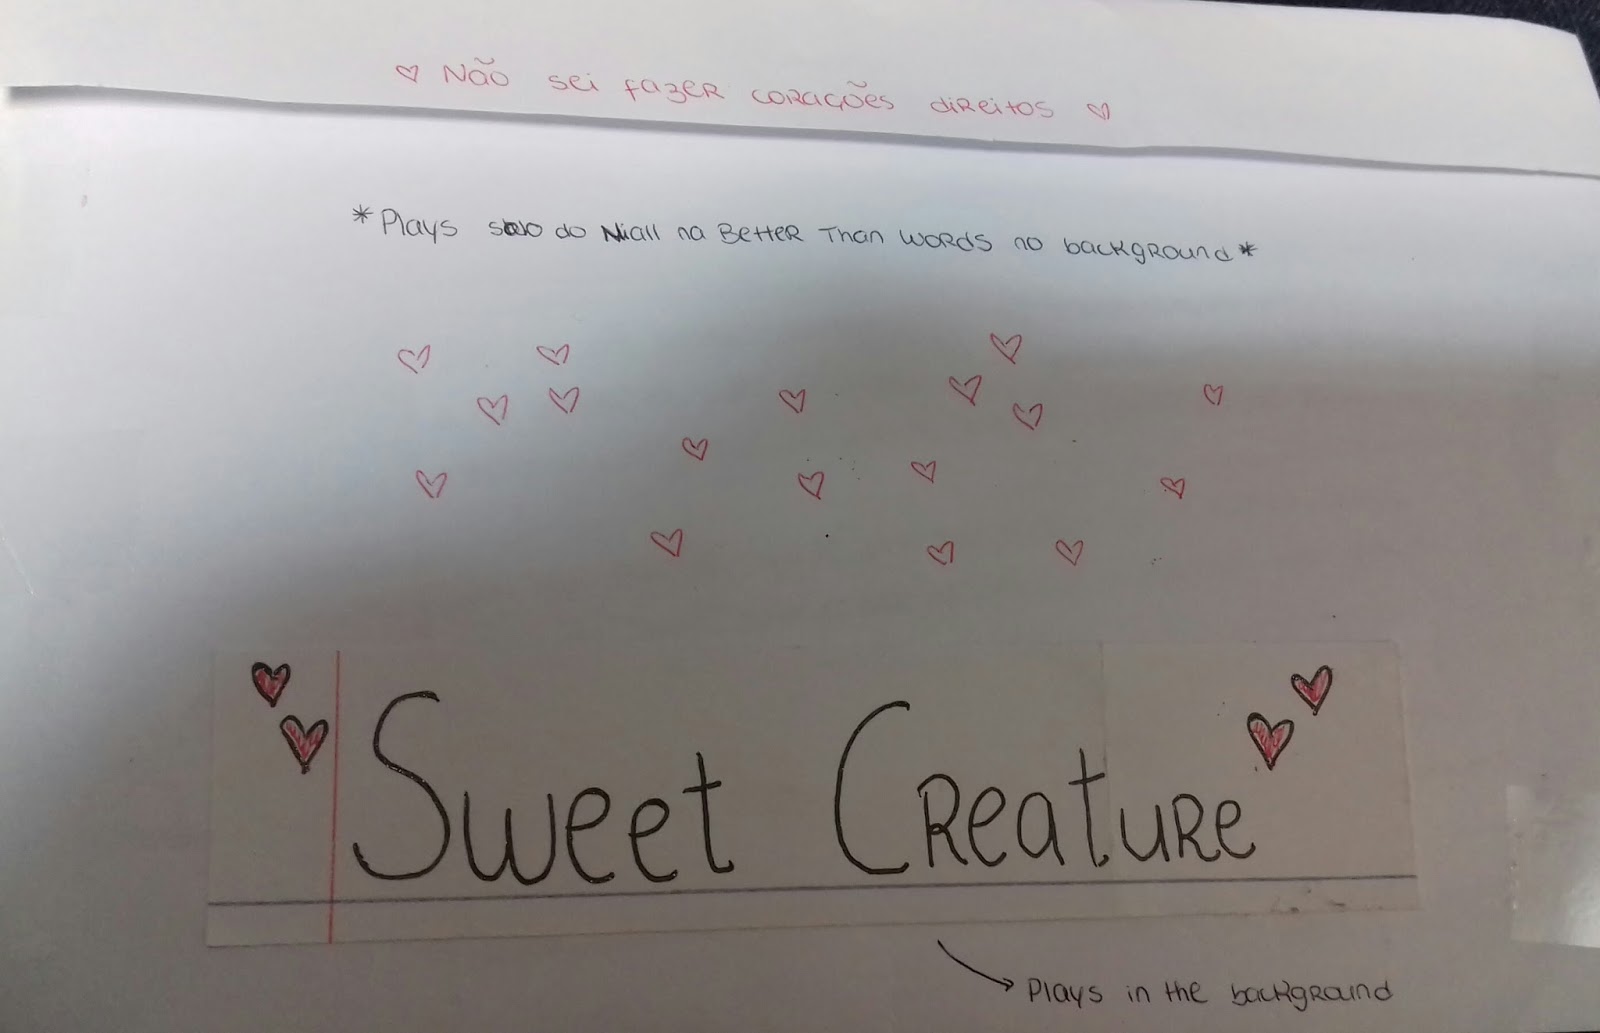 ♡ Não sei fazer corações direitos ♡
*Plays solo do Niall na Better Than Words no background*
Sweet Creature
Plays in the background